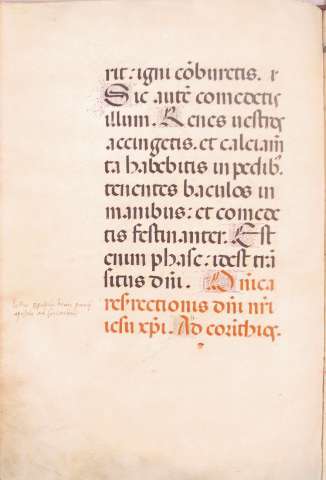 rit: igni cōburetis. r
Sic autē comedetis
illum. Renes uestros
accingetis. et calciam̄
ta habebitis in pedib⁹.
tenentes baculos in
manibus: et comede
tis festinanter. Est
enim phase: idest trā
situs dn̄i. Dn̄ica
resrectionis dn̄i nr̄i
iesu xp̄i. Ad corīthios.